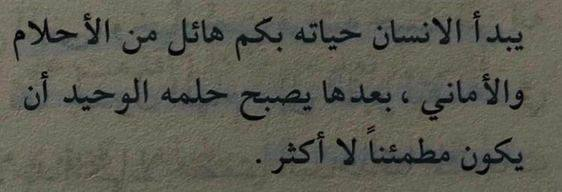 يبدأ الانسان حياته بكم هائل من الأحلام
والأماني ، بعدها يصبح حلمه الوحيد أن
يكون مطمئناً لا أكثر .